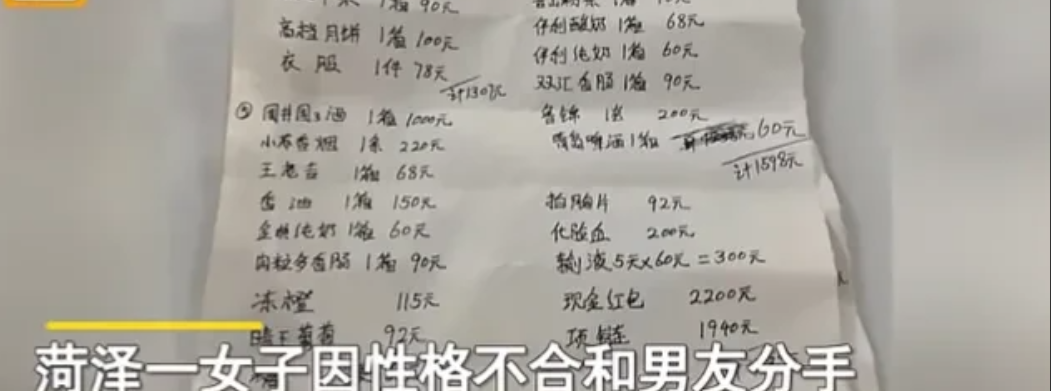 1箱 90元
高档月饼 1箱 100元
衣服 1件 78元
计1307元
⑤ 国井国3酒 1箱 1000元
小苏香烟 1条 220元
王老吉 1箱 68元
香油 1箱 150元
金典纯奶 1箱 60元
肉粒多香肠 1箱 90元
冻橙 115元
晴王葡萄 92元
伊利酸奶 1箱 68元
伊利纯奶 1箱 60元
双汇香肠 1箱 90元
200元
啤酒 1箱 60元
计1598元
拍胸片 92元
化验血 200元
输液5天×60元=300元
现金红包 2200元
项链 1940元
菏泽一女子因性格不合和男友分手